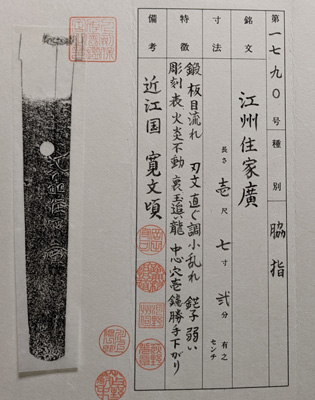 第一七九〇号 種別 脇指
銘文 江州住家廣
寸法 長さ 壱尺 七寸 弐分 有之 センチ
特徴 鍛 板目流れ 刃文 直ぐ調小乱れ 鋩子 弱い
彫刻 表 火炎不動 裏 玉追い龍 中心穴壱 鑢勝手下がり
備考 近江国 寛文頃